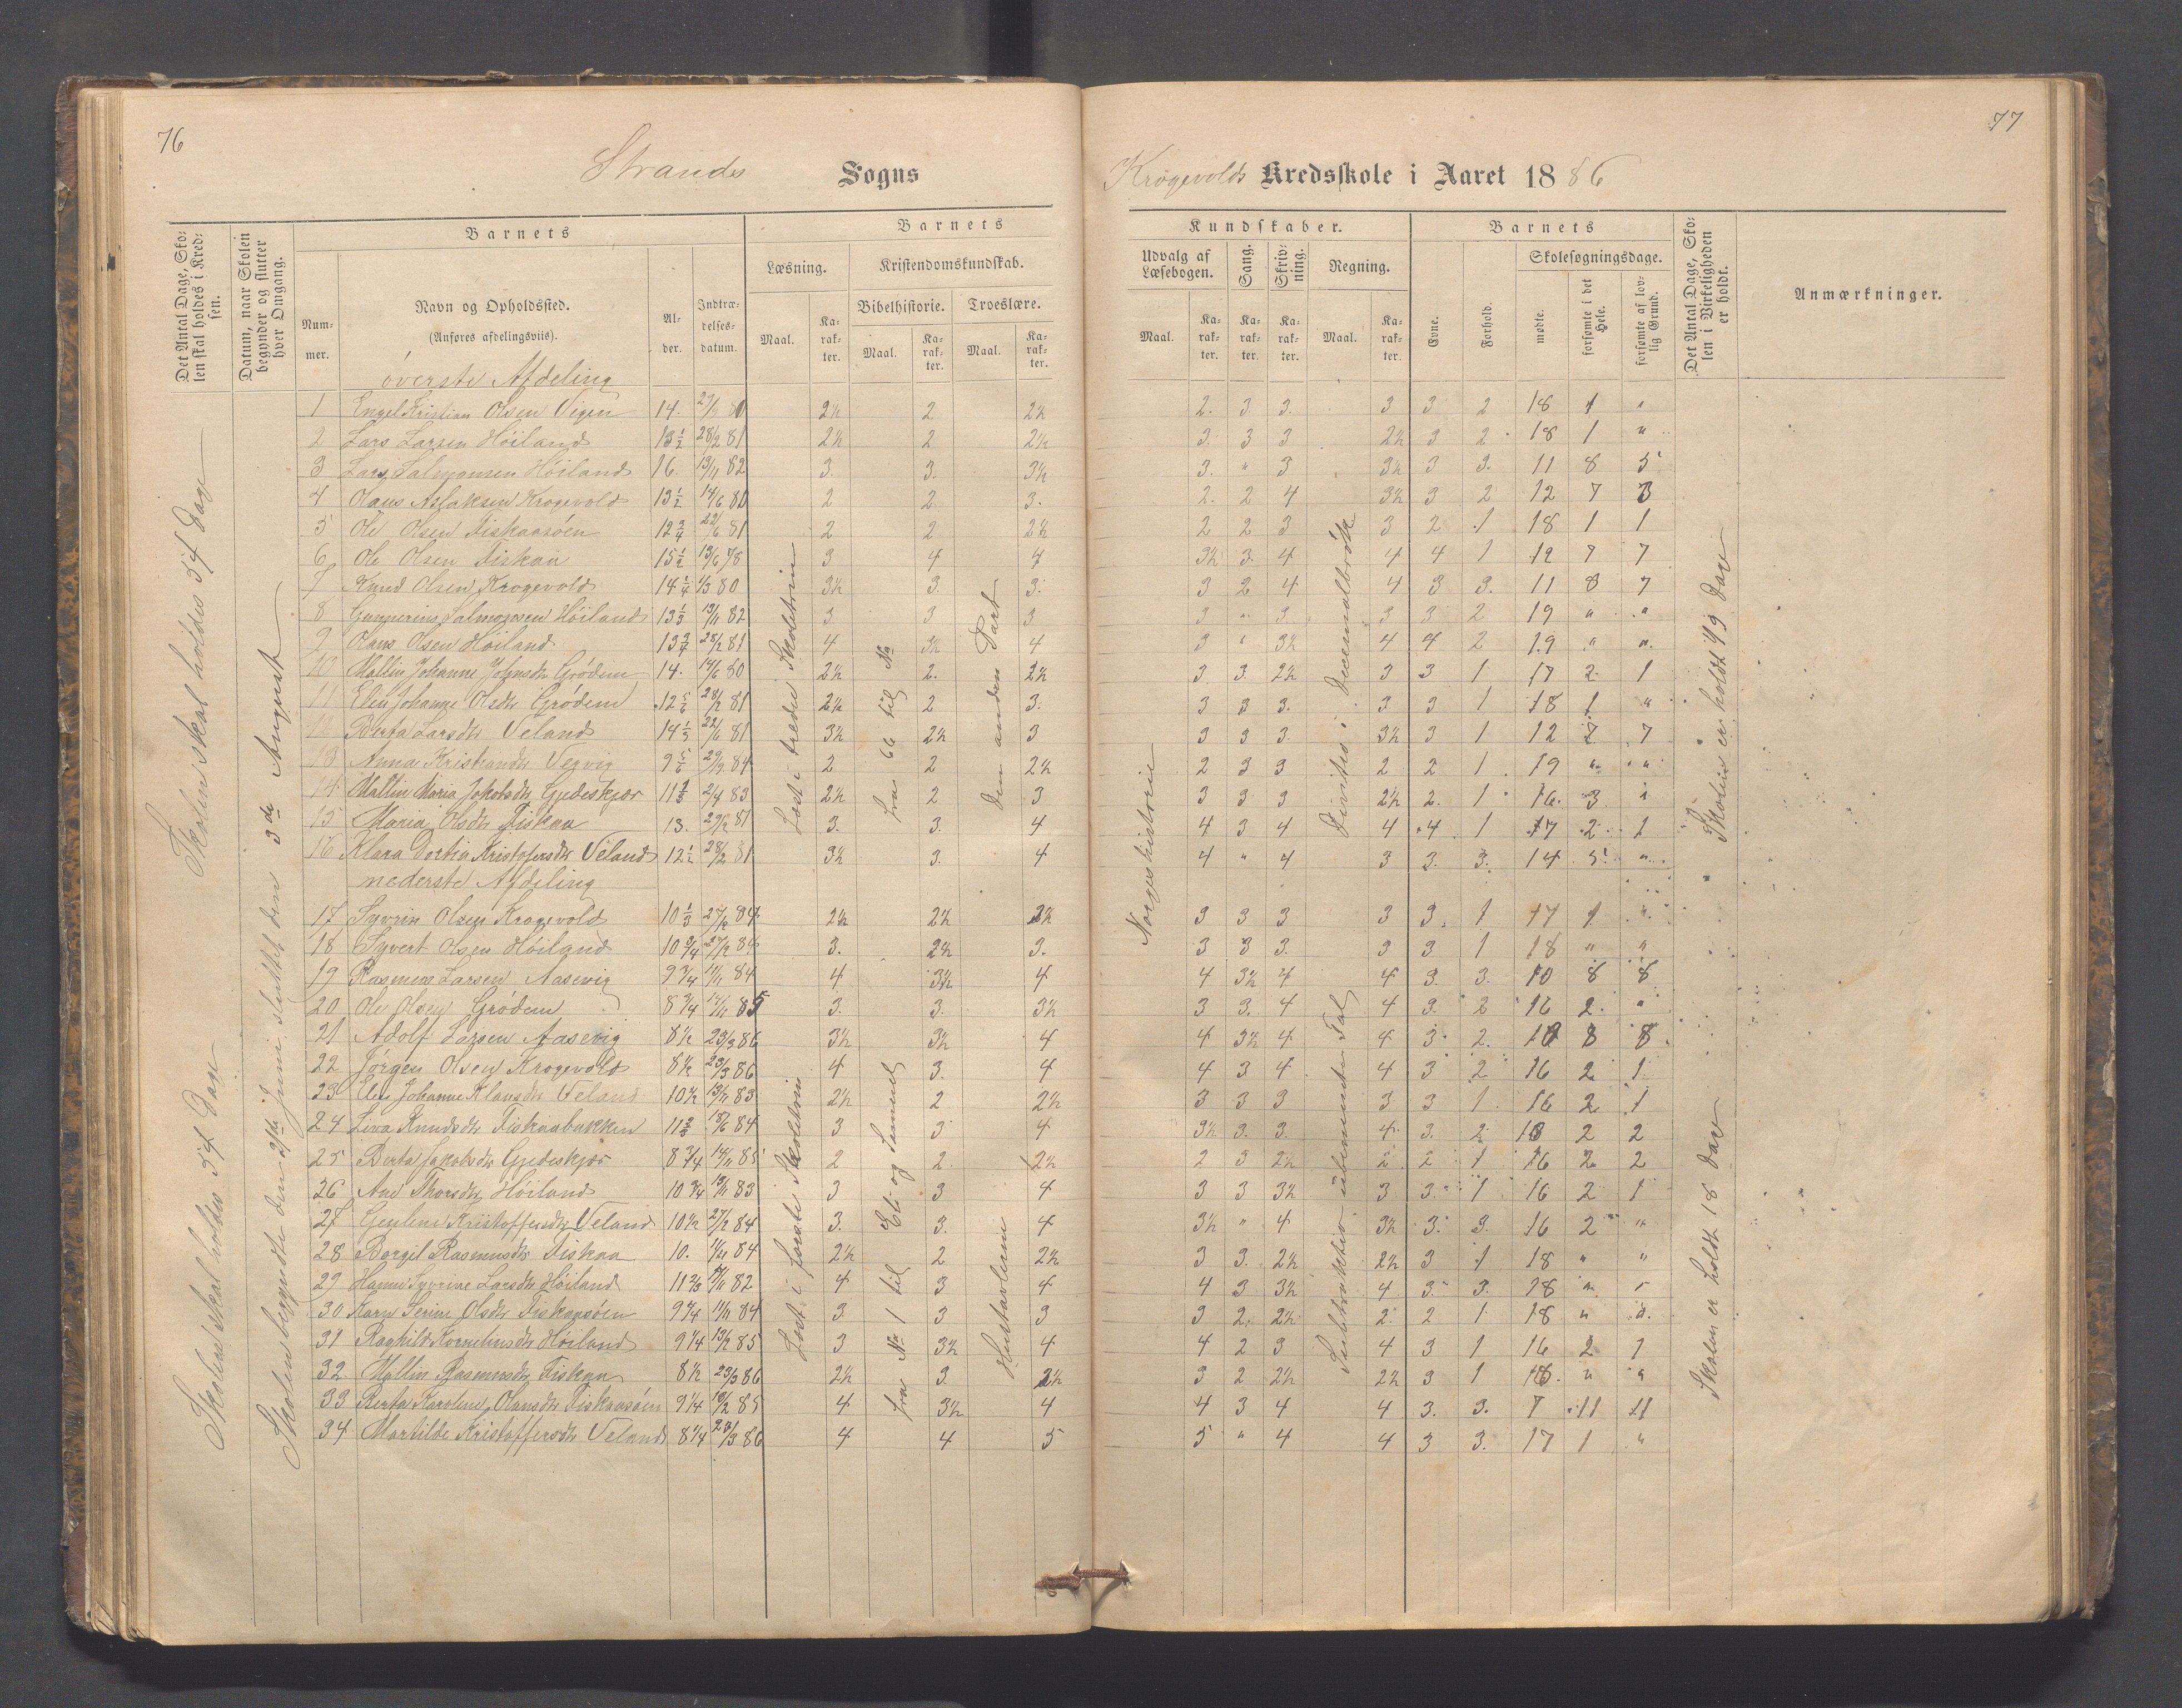 76
Strands Sogns
Det Antal Dage, Sko-
len skal holdes i Kred-
sen.
Datum, naar Skolen
begynder og slutter
hver Omgang.
Barnets
Num-
mer.
Navn og Opholdssted.
(Anføres afdelingsviis).
Al-
der.
Indtræ-
delses-
datum.
Barnets
Læsning.
Kristendomskundskab.
Bibelhistorie.
Troeslære.
Maal.
Ka-
rak-
ter.
Maal.
Ka-
rak-
ter.
Maal.
Ka-
rak-
ter.
øverste Afdeling
1 Engel Kristian Olsen Vigen 14. 2½ 2 2½
2 Lars Larsen Höiland 13½ 28/2 81 2½ 2 2½
3 Lars Salmonsen Höiland 16. 13/11 82 3. 3. 3½
4 Olaus Aslaksen Krogevold 13½ 14/6 80 2 2 3.
5 Ole Olsen Fiskaasöen 12¾ 22/6 81 2 2 2½
6 Ole Olsen Fiskaa 15½ 13/6 78 3 4 4
7 Knud Olsen Krogevold 14¼ 1/3 80 3½ 3. 3.
8 Gunnerius Salmonsen Höiland 13⅓ 13/11 82 3 3 3
9 Hans Olsen Höiland 13¾ 28/2 81 4 3½ 4
10 Mallin Johanne Johnsdtr Grödem 14. 14/6 80 2½ 2. 2½
11 Elen Johanne Olsdtr Grödem 12 5/6 28/2 81 2½ 2 3.
12 Berta Larsdtr Veland 14⅓ 22/6 81 3½ 2½ 3
13 Anna Kristiansdtr Vegvig 9 5/6 84 2 2 2½
14 Mallin Maria Jakobsdtr Gjedeskjær 11⅔ 2/4 83 2½ 2 3
15 Maria Olsdtr Fiskaa 13. 81 3. 3. 4
16 Klara Dortia Kristoffersdtr Veland 12½ 28/2 81 3½ 3. 4
nederste Afdeling
17 Syvrin Olsen Krogevold 10⅓ 27/2 84 2½ 2½ 2½
18 Syvert Olsen Höiland 10¾ 27/2 84 3. 2½ 3.
19 Rasmus Larsen Aasevig 9¾ 11/11 84 4 3½ 4
20 Ole Olsen Grödem 8¾ 14/11 85 3. 3. 3½
21 Adolf Larsen Aasevig 8½ 23/3 86 3½ 3½ 4
22 Jörgen Olsen Krogevold 8½ 23/3 86 4 3. 4
23 Elen Johanne Klausdtr Veland 10½ 13/11 83 2½ 2 2½
24 Liva Knudsdtr Fiskaabakken 11⅔ 18/6 84 3 3 4
25 Berta Jakobsdtr Gjedeskjær 8¾ 14/11 85 2 2. 2½
26 Ane Thorsdtr Höiland 10¾ 13/11 83 3 3 4
27 Kristoffersdtr Veland 10½ 27/2 84 3. 3. 4
28 Borgil Rasmusdtr Fiskaa 10. 11/11 84 2½ 2 2½
29 Hanne Syvrine Larsdtr Höiland 11⅔ 82 4 3 4
30 Karen Serine Olsdtr Fiskaasöen 9¾ 11/11 84 3 3 3
31 Raghild Korneliusdtr Höiland 9¼ 13/2 85 3 3½ 4
32 Mallin Rasmusdtr Fiskaa 8½ 23/3 86 2½ 3. 2½
33 Berta Karoline Olausdtr Fiskaasöen 9¼ 13/2 85 4 3½ 4
34 Martilde Kristoffersdtr Veland 8¼ 23/3 86 4 4 5
Skolen skal holdes 54 Dage
Skolen skal holdes 54 Dage
Skolen begyndte den Juni, sluttet den 3de August
Læst i tredie Skoletrin
Læst i første Skoletrin
fra 66 til No
fra No 1 til Eli og Samuel
Den anden Part
Hustavlerne
77
Krogevolds Kredsskole i Aaret 1886
Kundskaber.
Udvalg af
Læsebogen.
Sang.
Skriv-
ning.
Regning.
Maal.
Ka-
rak-
ter.
Ka-
rak-
ter.
Ka-
rak-
ter.
Maal.
Ka-
rak-
ter.
Barnets
Evne.
Forhold.
Skolesøgningsdage.
mødte.
forsømte i det
Hele.
forsømte af lov-
lig Grund.
Det Antal Dage, Sko-
len i Virkeligheden
er holdt.
Anmærkninger.
2. 3. 3. 3 3 2 18 1 "
3. 3 3 2½ 3 2 18 1 "
3. " 3 3½ 3 3. 11 8 5
2. 2 4 3½ 3 2 12 7 3
2 2 3 3 2 1 18 1 1
3½ 3. 4 4 4 1 12 7 7
3 2 4 4 3 3. 11 8 7
3 " 3. 3 3 2 19 " "
3 " 3½ 4 4 2 19 " "
3. 3. 2½ 3 3 1 17 2. 1
3 3 3. 3 3 1 18 1 "
3 3 3. 3½ 3 1 12 7 7
2 3 3 2 2 1 19 " "
3 3 3 2½ 2. 1 16. 3 1
4 3 4 4 4 1 17 2 1
4 " 4 3 3. 3. 14 5 "
3 3 3 3 3. 1 17 1 "
3 3 3. 3 3 1 18 " "
4 3½ 4 4 3. 3. 10 8 8
3 3. 4 4 3. 2 16 2. "
4 3½ 4 4 3. 2. 10 8 8
4 3 4 4 3 2 16 2 1
3 3 3 3 3 1 16 2 1
3½ 3. 3. 4 3. 2 2 2
2 3 2½ 2 2 1 16 2 2
3 3 3½ 3 3. 1 16 2 1
3½ " 4 3½ 3. 3. 16 2 "
3 3. 2½ 2½ 3 1 18 " "
4 3 3½ 4 3. 3. 18 " "
3 2. 2½ 2. 2 1 18 " "
4 2 3 4 3 1 16 2 1
3 2 2½ 2½ 3 1 18. " "
4 3 4 4 3. 3. 7 11 11
5 " 4 4 3 3. 17 1 "
Norgeshistorie
Division i Decemalbrök
Subtraktion ubenævnte Tal
Skolen er holdt 19 Dage
Skolen er holdt 18 Dage